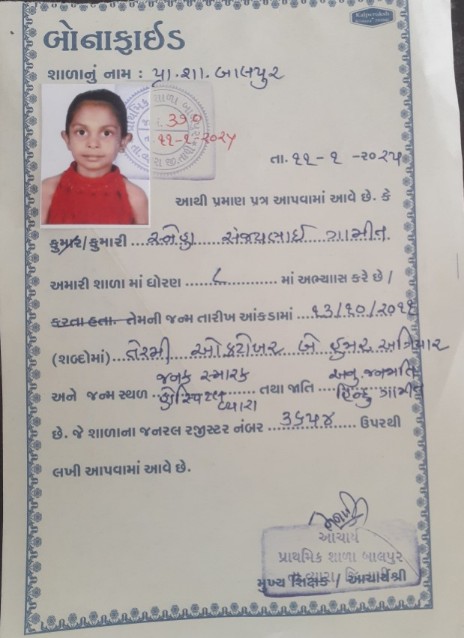 Kalpvruksh
બોનાફાઈડ
શાળાનું નામ : પ્રા.શા. બાલપુર
૩૭૦
૧૧-૧-૨૦૨૫
તા. ૧૧-૧-૨૦૨૫
આથી પ્રમાણ પત્ર આપવામાં આવે છે. કે
કુમાર/કુમારી ...સ્નેહા સંજયભાઈ ગામીત
અમારી શાળા માં ધોરણ ......૮...... માં અભ્યાાસ કરે છે /
કરતા હતા. તેમની જન્મ તારીખ આંકડામાં ...૧૩/૧૦/૨૦૧૧
(શબ્દોમાં) ..તેરમી ઓક્ટોબર બે હજાર અગિયાર
જનક સ્મારક અનુ.જનજાતિ
અને જન્મ સ્થળ ..હોસ્પિટલ.. તથા જાતિ ..હિન્દુ ગામીત
વ્યારા
છે. જે શાળાના જનરલ રજીસ્ટર નંબર ...૩૬૫૪... ઉપરથી
લખી આપવામાં આવે છે.
આચાર્ય
પ્રાથમિક શાળા બાલપુર
મુખ્ય શિક્ષક / આચાર્યશ્રી